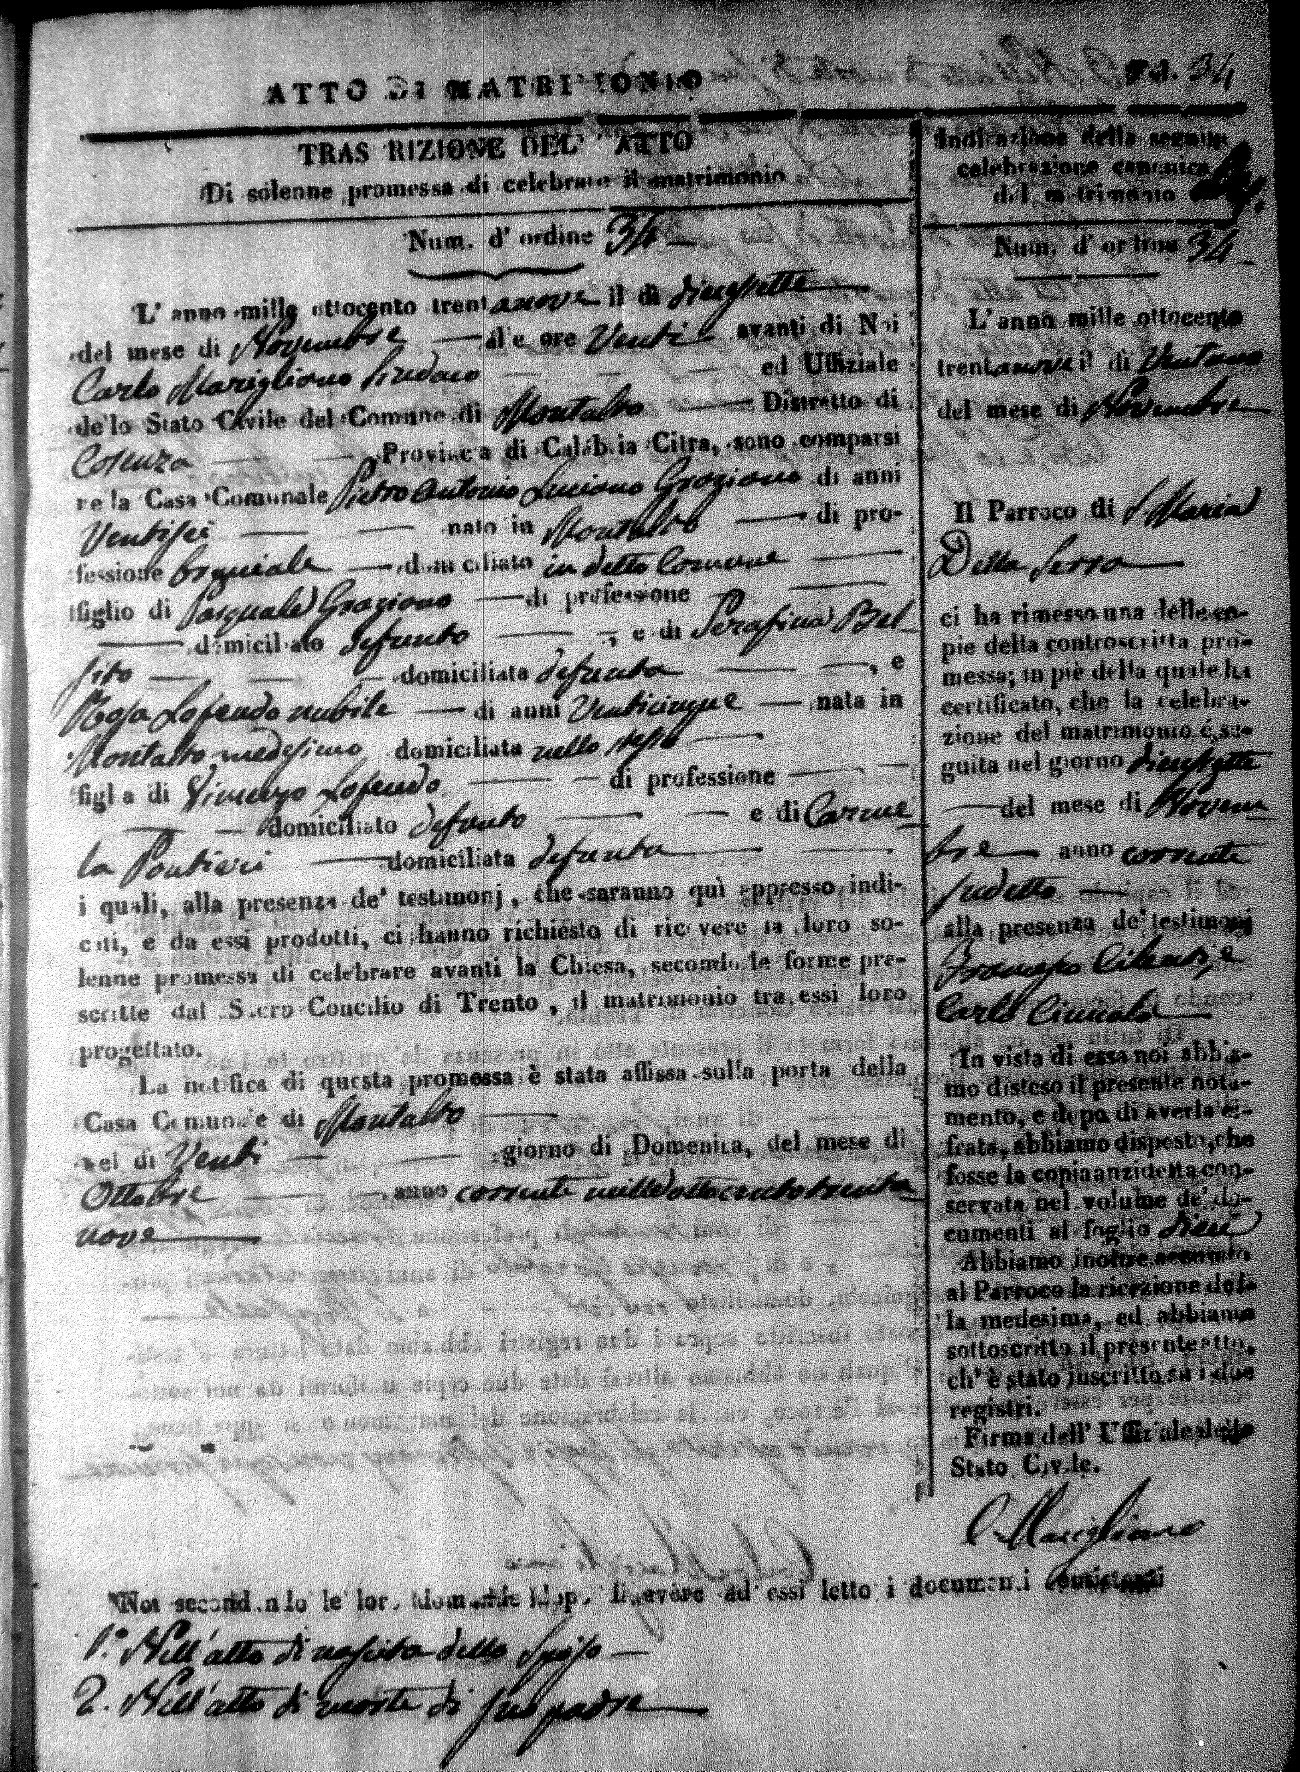 ATTO DI MATRIMONIO
Fol. 34
TRASCRIZIONE DELL' ATTO
Di solenne promessa di celebrare il matrimonio
Num. d' ordine 34
L' anno mille ottocento trentanove il dì diecissette
del mese di Novembre alle ore Venti avanti di Noi
Carlo Marigliano Sindaco ed Uffiziale
dello Stato Civile del Comune di Montalto Distretto di
Cosenza Provincia di Calabria Citra, sono comparsi
nella Casa Comunale Pietro Antonio Luciano Graziano di anni
Ventisei nato in Montalto di pro-
fessione domiciliato in detto Comune
figlio di Pasquale Graziano di professione
domiciliato defunto , e di Serafina Bel
sito domiciliata defunta , e
Rosa Lofendo nubile di anni Venticinque nata in
Montalto medesimo domiciliata nello stesso
figlia di Vincenzo Lofendo di professione
domiciliato defunto e di Carme
la Pontieri domiciliata defunta
i quali, alla presenza de' testimonj, che saranno quì appresso indi-
cati, e da essi prodotti, ci hanno richiesto di ricevere la loro so-
lenne promessa di celebrare avanti la Chiesa, secondo le forme pre-
scritte dal Sacro Concilio di Trento, il matrimonio tra essi loro
progettato.
La notifica di questa promessa è stata affissa sulla porta della
Casa Comunale di Montalto
nel dì Venti giorno di Domenica, del mese di
Ottobre anno corrente mille ottocento trenta
nove
Indicazione della seguita
celebrazione canonica
del matrimonio
Num. d' ordine 34
L' anno mille ottocento
trentanove il dì Ventuno
del mese di Novembre
Il Parroco di S. Maria
Della Serra
ci ha rimesso una delle co-
pie della controscritta pro-
messa; in piè della quale ha
certificato, che la celebra-
zione del matrimonio è se-
guita nel giorno diecissette
del mese di Novem
bre anno corrente
sudetto
alla presenza de' testimonj
Francesco e
Carlo
In vista di essa noi abbia-
mo disteso il presente nota-
mento, e dopo di averla ci-
frata, abbiamo disposto, che
fosse la copia anzidetta con-
servata nel volume de' do-
cumenti al foglio dieci
Abbiamo inoltre accusato
al Parroco la ricezione del-
la medesima, ed abbiamo
sottoscritto il presente atto,
ch' è stato inscritto su i due
registri.
Firma dell' Uffiziale dello
Stato Civile.
C. Marigliano
Noi secondando le loro domande dopo di avere ad essi letto i documenti consistenti
1.° Nell' atto di nascita dello Sposo
2. Nell' atto di morte di suo padre